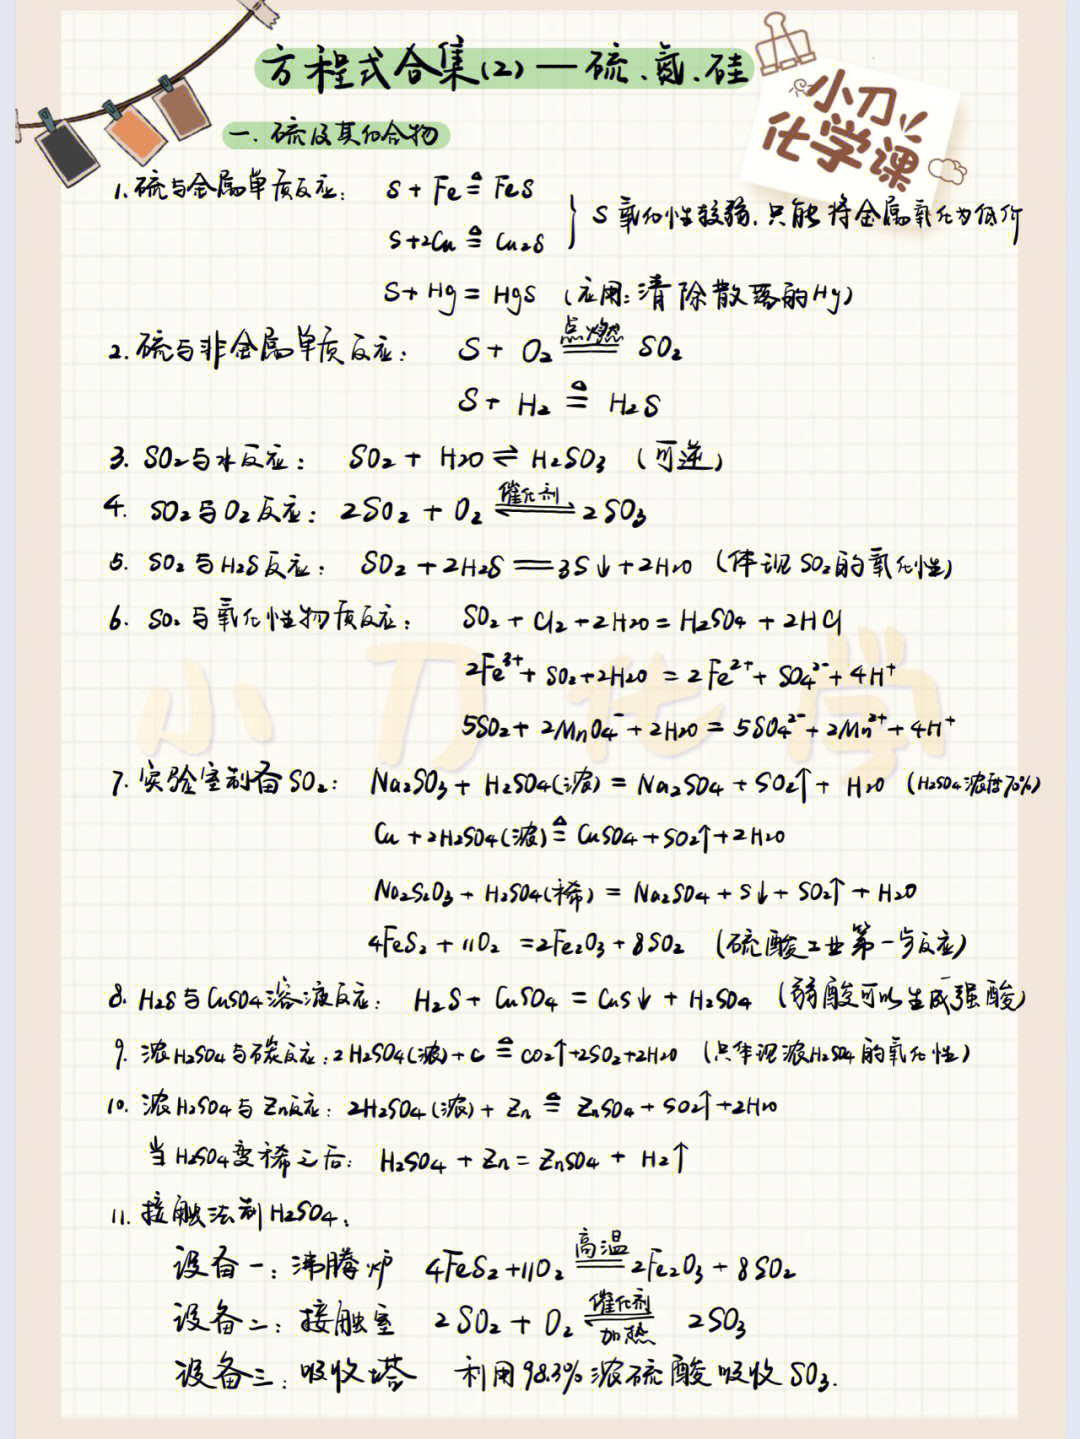 方程式合集(2)—硫、氮、硅
小刀化学课
一. 硫及其化合物
1. 硫与金属单质反应: S + Fe ≜ FeS
S+2Cu ≜ Cu₂S } S氧化性较弱.只能将金属氧化为低价
S+ Hg = HgS (应用:清除散落的Hg)
2. 硫与非金属单质反应: S + O₂ ══点燃══ SO₂
S + H₂ ≜ H₂S
3. SO₂与水反应: SO₂ + H₂O ⇌ H₂SO₃ (可逆)
4. SO₂与O₂反应: 2SO₂ + O₂ ⇌催化剂 2SO₃
5. SO₂与H₂S反应: SO₂ +2H₂S ══ 3S↓+2H₂O (体现SO₂的氧化性)
6. SO₂与氧化性物质反应: SO₂ + Cl₂ +2H₂O = H₂SO₄ + 2HCl
2Fe³⁺+ SO₂+2H₂O = 2Fe²⁺+ SO₄²⁻+ 4H⁺
小刀化学
5SO₂+ 2MnO₄⁻ +2H₂O = 5SO₄²⁻+ 2Mn²⁺+ 4H⁺
7. 实验室制备SO₂: Na₂SO₃ + H₂SO₄(浓) = Na₂SO₄ + SO₂↑+ H₂O (H₂SO₄浓度70%)
Cu +2H₂SO₄(浓) ≜ CuSO₄+SO₂↑+2H₂O
Na₂S₂O₃ + H₂SO₄(稀) = Na₂SO₄ + S↓+ SO₂↑ + H₂O
4FeS₂ +11O₂ =2Fe₂O₃+8SO₂ (硫酸工业第一步反应)
8. H₂S与CuSO₄溶液反应: H₂S+ CuSO₄ = CuS↓ + H₂SO₄ (弱酸可以生成强酸)
9. 浓H₂SO₄与碳反应: 2H₂SO₄(浓)+C ≜ CO₂↑+2SO₂+2H₂O (只体现浓H₂SO₄的氧化性)
10. 浓H₂SO₄与Zn反应: 2H₂SO₄(浓)+ Zn ≜ ZnSO₄+ SO₂↑+2H₂O
当H₂SO₄变稀之后: H₂SO₄ + Zn = ZnSO₄ + H₂↑
11. 接触法制H₂SO₄:
设备一: 沸腾炉 4FeS₂+11O₂ ══高温══ 2Fe₂O₃ + 8SO₂
设备二: 接触室 2SO₂ + O₂ ⇌催化剂 加热 2SO₃
设备三: 吸收塔 利用98.3%浓硫酸吸收SO₃.